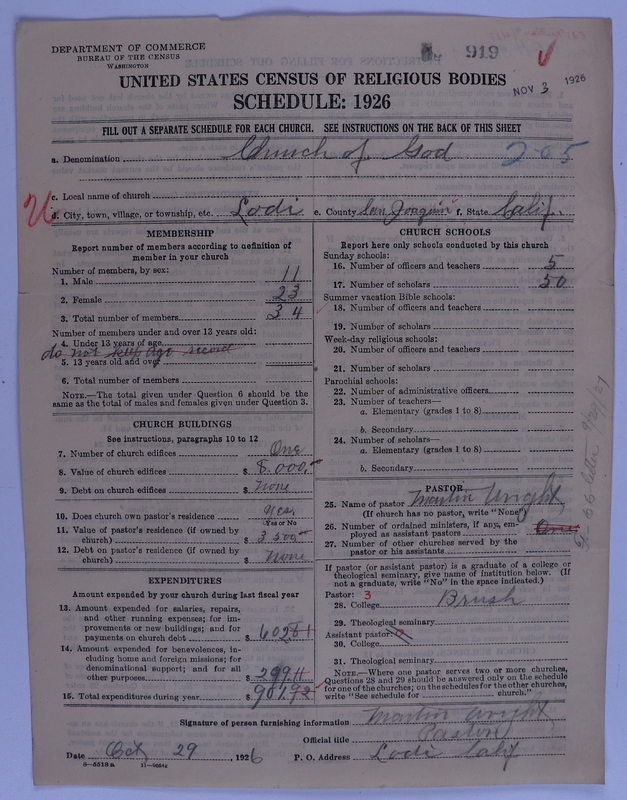 919
DEPARTMENT OF COMMERCE
BUREAU OF THE CENSUS
WASHINGTON
UNITED STATES CENSUS OF RELIGIOUS BODIES
NOV 3 1926
SCHEDULE: 1926
FILL OUT A SEPARATE SCHEDULE FOR EACH CHURCH. SEE INSTRUCTIONS ON THE BACK OF THIS SHEET
a. Denomination Church of God 205
c. Local name of church
d. City, town, village, or township, etc. Lodi e. County San Joaquin f. State Calif.
MEMBERSHIP
Report number of members according to definition of
member in your church
Number of members, by sex:
1. Male 11
2. Female 23
3. Total number of members 34
Number of members under and over 13 years old:
4. Under 13 years of age
do not keep age record
5. 13 years old and over
6. Total number of members
NOTE.—The total given under Question 6 should be the
same as the total of males and females given under Question 3.
CHURCH BUILDINGS
See instructions, paragraphs 10 to 12
7. Number of church edifices One
8. Value of church edifices $ 8.000.00
9. Debt on church edifices $ None
10. Does church own pastor's residence Yes.
Yes or No
11. Value of pastor's residence (if owned by
church) $ 3500.00
12. Debt on pastor's residence (if owned by
church) $ None
EXPENDITURES
Amount expended by your church during last fiscal year
13. Amount expended for salaries, repairs,
and other running expenses; for im-
provements or new buildings; and for
payments on church debt $ 602.81
14. Amount expended for benevolences, in-
cluding home and foreign missions; for
denominational support; and for all
other purposes $ 299.11
15. Total expenditures during year $ 901.92
CHURCH SCHOOLS
Report here only schools conducted by this church
Sunday schools:
16. Number of officers and teachers 5
17. Number of scholars 50
Summer vacation Bible schools:
18. Number of officers and teachers
19. Number of scholars
Week-day religious schools:
20. Number of officers and teachers
21. Number of scholars
Parochial schools:
22. Number of administrative officers
23. Number of teachers—
a. Elementary (grades 1 to 8)
b. Secondary
24. Number of scholars—
a. Elementary (grades 1 to 8)
b. Secondary
PASTOR
25. Name of pastor Martin Wright
(If church has no pastor, write "None")
26. Number of ordained ministers, if any, em-
ployed as assistant pastors One
27. Number of other churches served by the
pastor or his assistants
If pastor (or assistant pastor) is a graduate of a college or
theological seminary, give name of institution below. (If
not a graduate, write "No" in the space indicated.)
Pastor: 3
28. College Brush
29. Theological seminary
Assistant pastor:
30. College
31. Theological seminary
NOTE.—Where one pastor serves two or more churches,
Questions 28 and 29 should be answered only on the schedule
for one of the churches; on the schedules for the other churches,
write "See schedule for church."
letter 9/20/27
Signature of person furnishing information Martin Wright
Official title Pastor
Date Oct 29, 1926 P. O. Address Lodi Calif
8—5518a 11—9884z